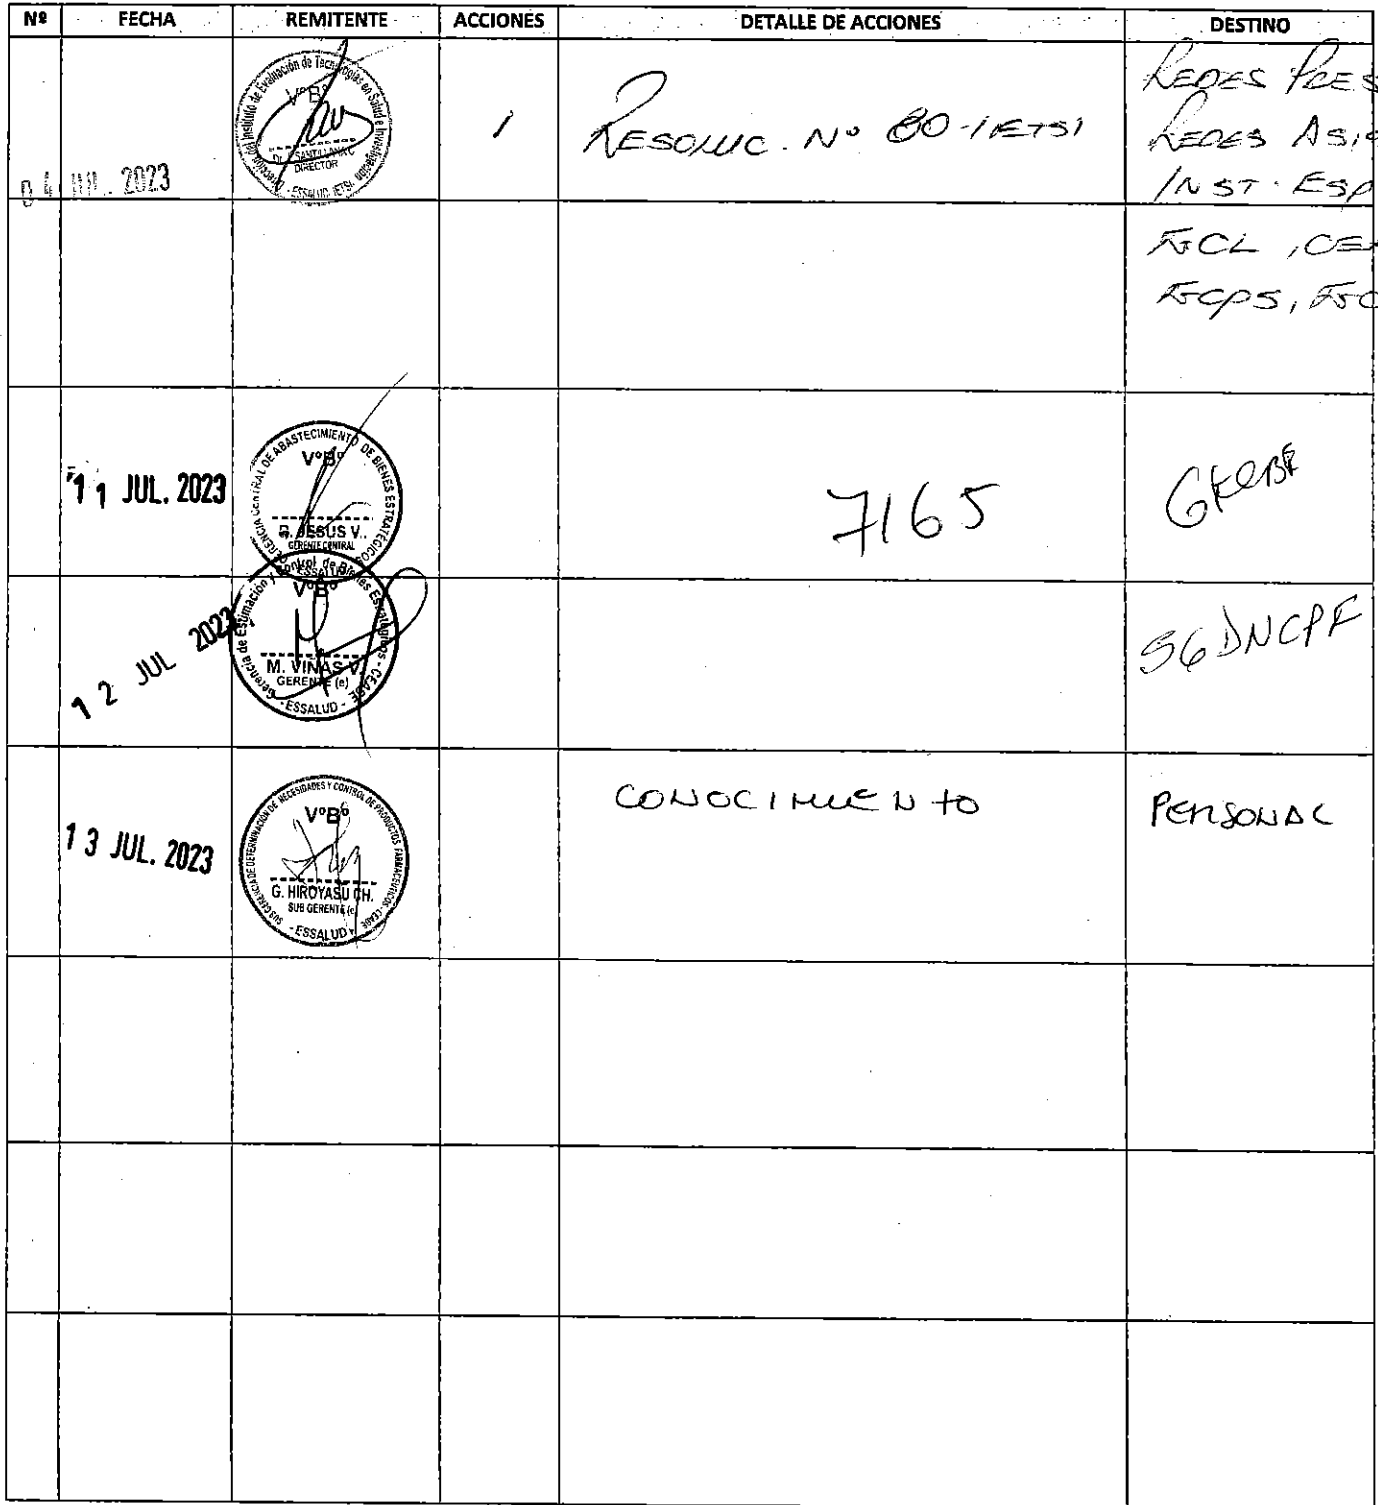 Nº FECHA REMITENTE ACCIONES DETALLE DE ACCIONES DESTINO
Dirección del Instituto de Evaluación de Tecnologías en Salud e Investigación
VºBº
DIRECTOR
- ESSALUD - IETSI
04 JUL. 2023
1
RESOLUC. Nº 80-IETSI
REDES PRES
REDES ASIS
INST. ESP
GCL , CE
GCPS, GC
11 JUL. 2023
GERENCIA CENTRAL DE ABASTECIMIENTO DE BIENES ESTRATÉGICOS
VºBº
JESUS V.
GERENTE CENTRAL
ESSALUD
7165
12 JUL 2023
Gerencia de Estimación y Control de Bienes Estratégicos - CEABE
VºBº
M. VINAS V.
GERENTE (e)
- ESSALUD -
SGDNCPF
13 JUL. 2023
SUB GERENCIA DE DETERMINACIÓN DE NECESIDADES Y CONTROL DE PRODUCTOS FARMACÉUTICOS - CEABE
VºBº
G. HIROYASU CH.
SUB GERENTE (e)
- ESSALUD -
CONOCIMIENTO
PERSONAL